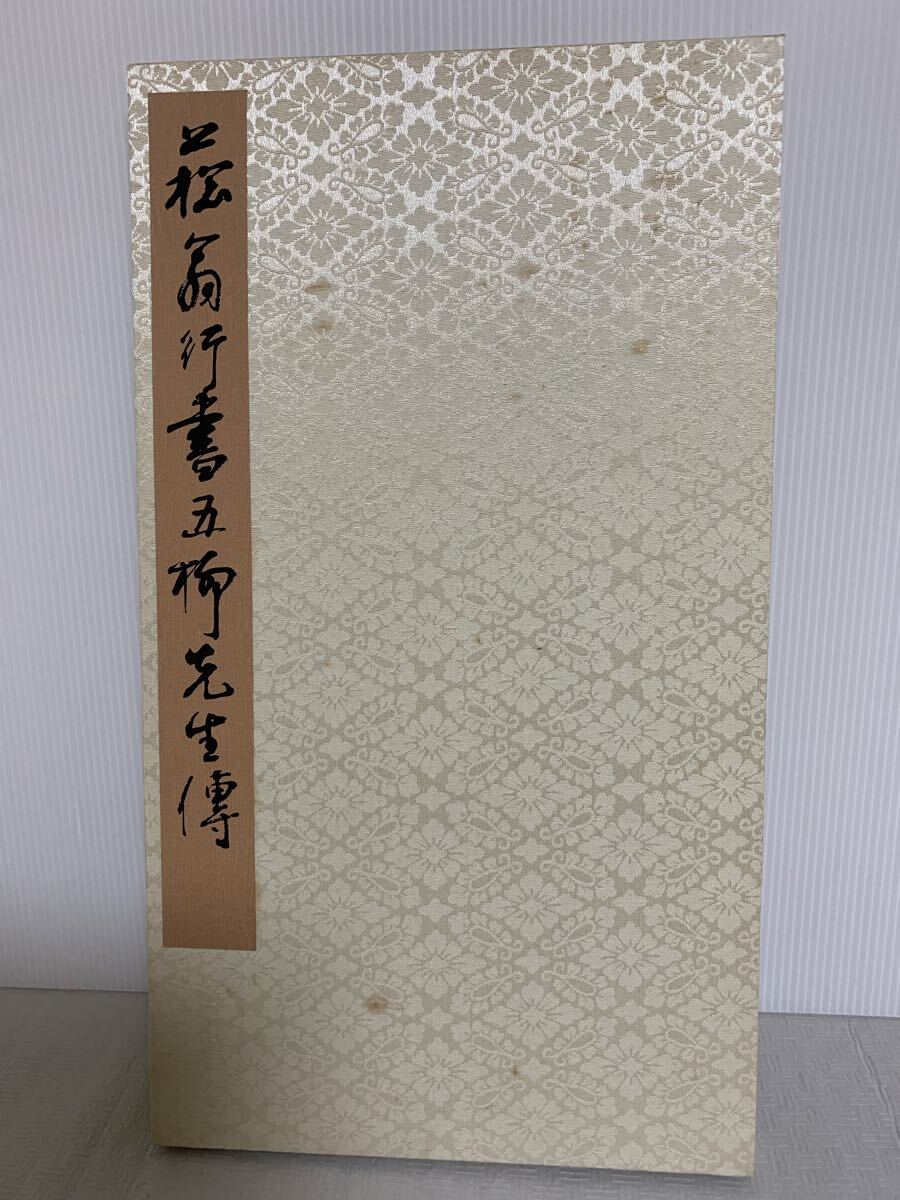 菘翁行書五柳先生傳